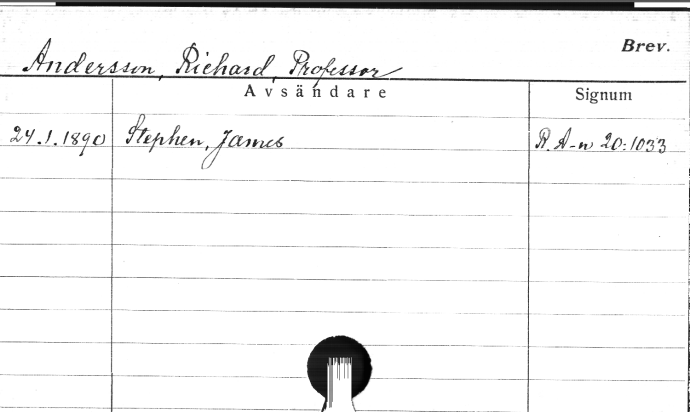 Brev.
Andersson, Richard, Professor
Avsändare Signum
24.1.1890 Stephen, James R. A-n 20:1033